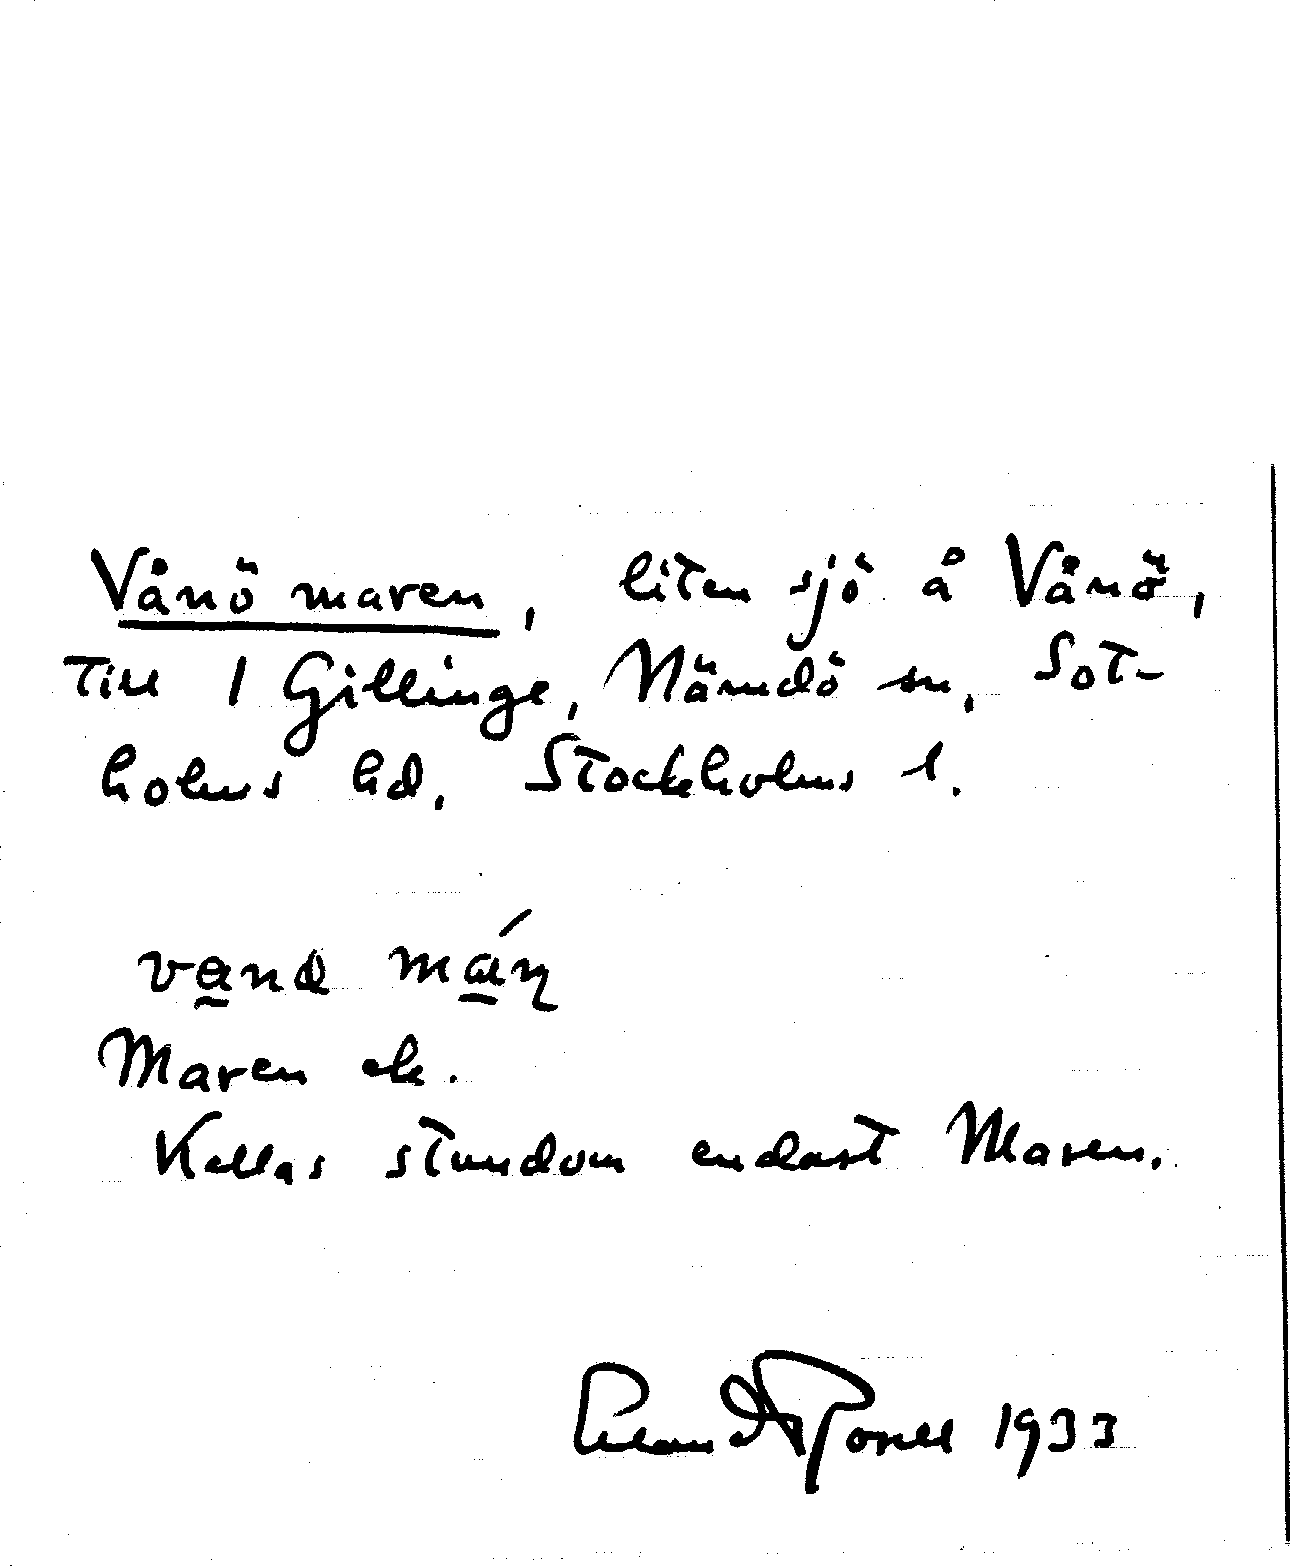 Vånö maren, liten sjö å Vånö,
till 1 Gillinge, Nämdö sn, Sot-
holms hd, Stockholms l.
Maren ek.
Kallas stundom endast Maren.
1933